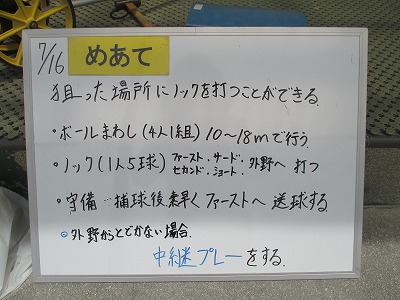 7/16 めあて
狙った場所にノックを打つことができる.
・ボールまわし(4人1組) 10~18mで行う.
・ノック(1人5球) ファースト・サード・セカンド・ショート・外野へ 打つ
・守備…捕球後素早く ファーストへ 送球する.
◎外野からとどかない場合.
中継プレーをする.